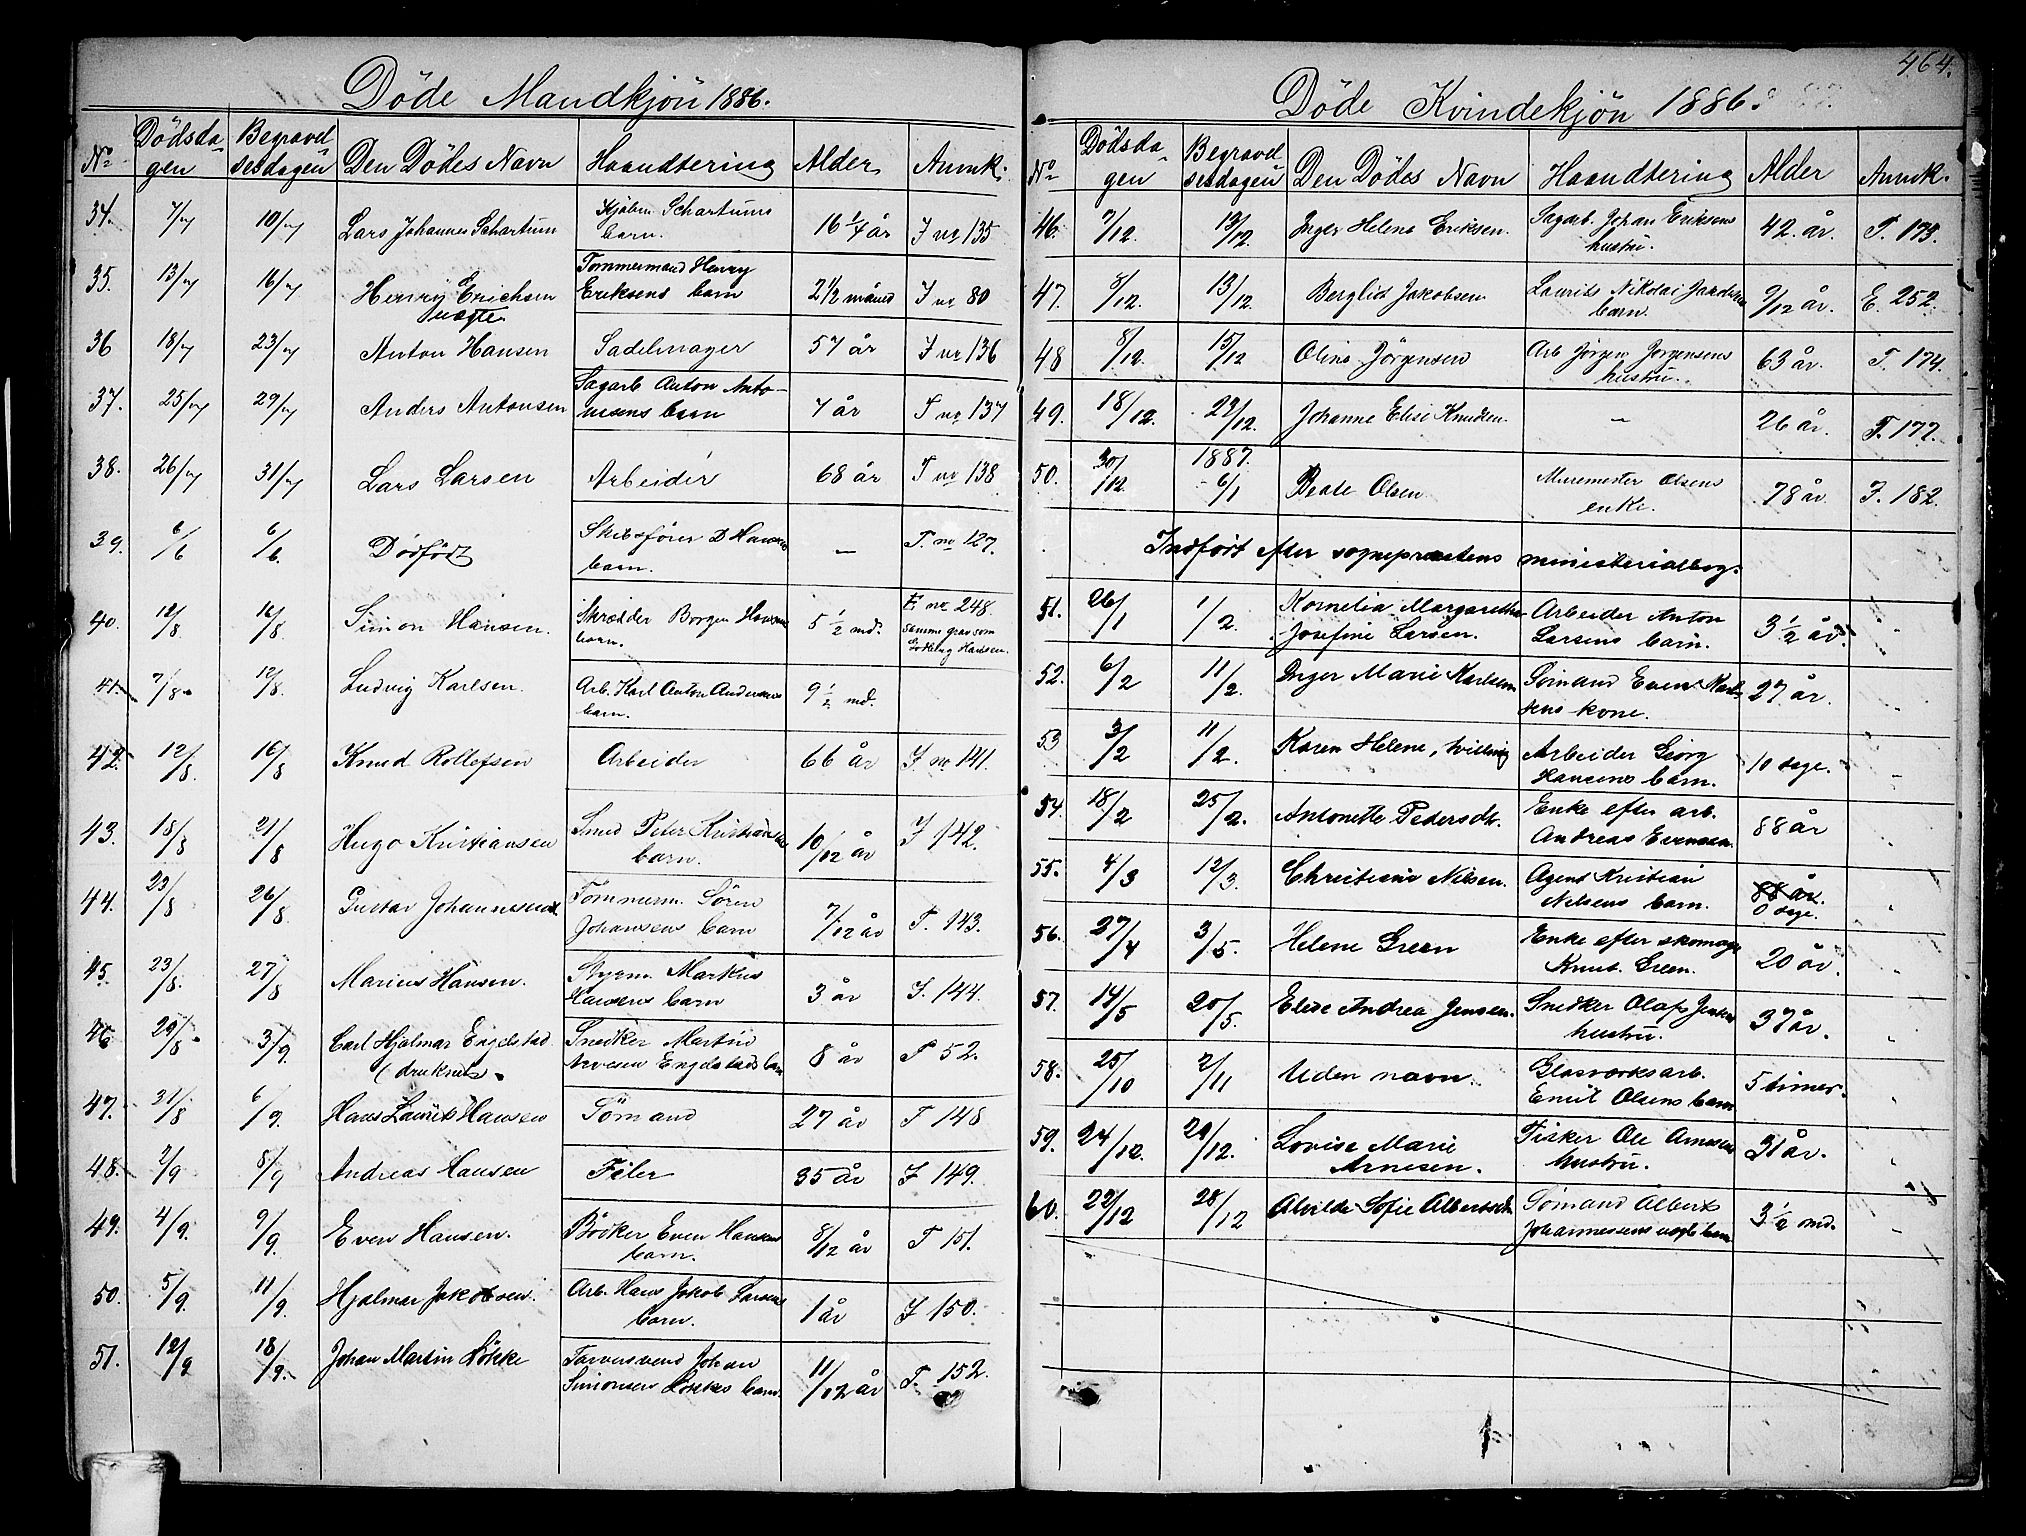 Döde Mandkjön 1886.
No Dödsdagen Begravelsesdagen Den Dödes Navn Haandtering Alder Anmk.
34. 7/7 10/7 Lars Johannes Schartum Kjöbm Schartums barn. 16 1/4 år F nr 135
35. 13/7 16/7 Henry Erichsen uægte Tømmermand Henry Eriksens barn 2 1/2 måned F nr 80
36 18/7 23/7 Anton Hansen Sadelmager 57 år F nr 136
37. 25/7 29/7 Anders Antonsen Sagarb Anton Antonesens barn 7 år F nr 137
38. 26/7 31/7 Lars Larsen Arbeider 68 år F nr 138
39. 6/6 6/6. Dødfødt Skibsfører D Hansens barn. — F. nr 127.
40. 12/8 16/8. Simon Hansen. Skrædder Borgen Hansens barn. 5 1/2 md. E nr 248. samme grav som Hansen.
41. 7/8 12/8. Ludvig Karlsen. Arb. Karl Anton Andersens barn. 9 1/2 md.
42. 12/8. 16/8 Knud Rollefsen Arbeider 66 år F nr 141.
43. 18/8 21/8 Hugo Kristiansen Smed Peter Kristiansens barn. 10/12 år F 142.
44. 23/8 26/8. Gustav Johannesen Tømmerm. Sören Johansens barn 7/12 år F. 143.
45. 23/8. 27/8 Marius Hansen. Styrm. Markus Hansens barn 3 år F. 144.
46 29/8 3/9. Carl Hjalmar Engelstad (druknet) Snedker Martin Arvesen Engelstads barn 8 år F 52.
47. 31/8 6/9. Hans Laurits Hansen Sömand 27 år F 148
48. 2/9 8/9 Andreas Hansen Føler 35 år F 149.
49. 4/9. 9/9. Even Hansen. Bödker Even Hansens barn. 8/12 år F 151.
50. 5/9. 11/9. Hjalmar Jakobsen. Arb. Hans Jakob Larsens barn. 1 år F 150.
51. 12/9 18/9. Johan Martin Lökke Farversvend Johan Simonsen Løkkes barn. 11/12 år F. 152.
464.
Döde Kvindekjön 1886.
No Dödsdagen Begravelsesdagen Den Dödes Navn Haandtering Alder Anmk.
46. 7/12. 13/12. Inger Helene Eriksen. Sagarb. Johan Eriksens hustru. 42. år. F. 173.
47. 8/12. 13/12. Berglid Jakobsen Laurits Nikolai Jakobsens barn. 9/12 år. E. 252.
48 8/12. 15/12 Olina Jörgensen Arb Jörgen Jörgensens hustru. 63 år. F. 174.
49. 18/12. 22/12. Johanne Elise Knudsen. — 26 år. F. 177.
50. 30/12. 1887. 6/1 Beate Olsen. Muremester Olsens enke. 78 år. F. 182.
Indført efter sognepræstens ministerialbog.
51. 26/1 1/2. Kornelia Margarethe Josefine Larsen. Arbeider Anton Larsens barn. 3 1/2 år.
52. 6/2 11/2. Inger Marie Karlsen Sömand Even Karlsens kone. 27 år.
53 3/2 11/2. Karen Helene, tvilling Arbeider Georg Hansens barn. 10 dage.
54. 18/2 25/2. Antonette Pedersdt. Enke efter arb. Andreas Evensen. 88 år
55. 4/3 12/3. Christiane Nilsen. Agent Kristian Nilsens barn. 88 år. 0 dage.
56. 27/4 3/5. Helene Green Enke efter skomager Knut. Green. 20 år.
57. 14/5 20/5. Elise Andrea Jensen. Snedker Olaf Jensens hustru. 37 år.
58. 25/10 2/11 Uden navn. Glasværksarb. Emil Olsens barn 5 timer.
59. 24/12. 29/12. Lovise Marie Arnesen. Fisker Ole Arnesens hustru. 31 år.
60. 22/12 28/12 Alvilde Sofie Albertsdt. Sømand Alberts Johannessens uægte barn 3 1/2 md.